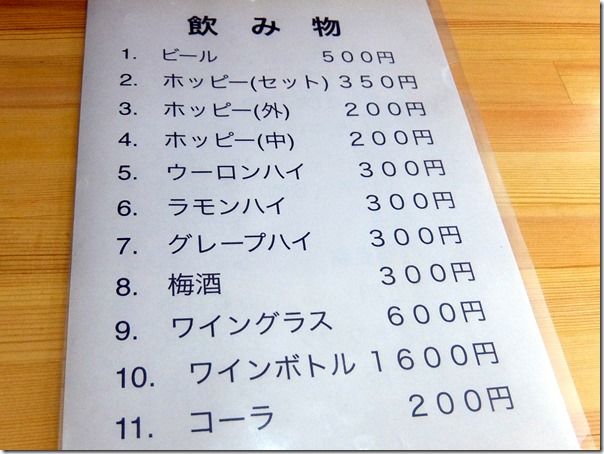 飲み物
1. ビール 500円
2. ホッピー(セット) 350円
3. ホッピー(外) 200円
4. ホッピー(中) 200円
5. ウーロンハイ 300円
6. ラモンハイ 300円
7. グレープハイ 300円
8. 梅酒 300円
9. ワイングラス 600円
10. ワインボトル 1600円
11. コーラ 200円